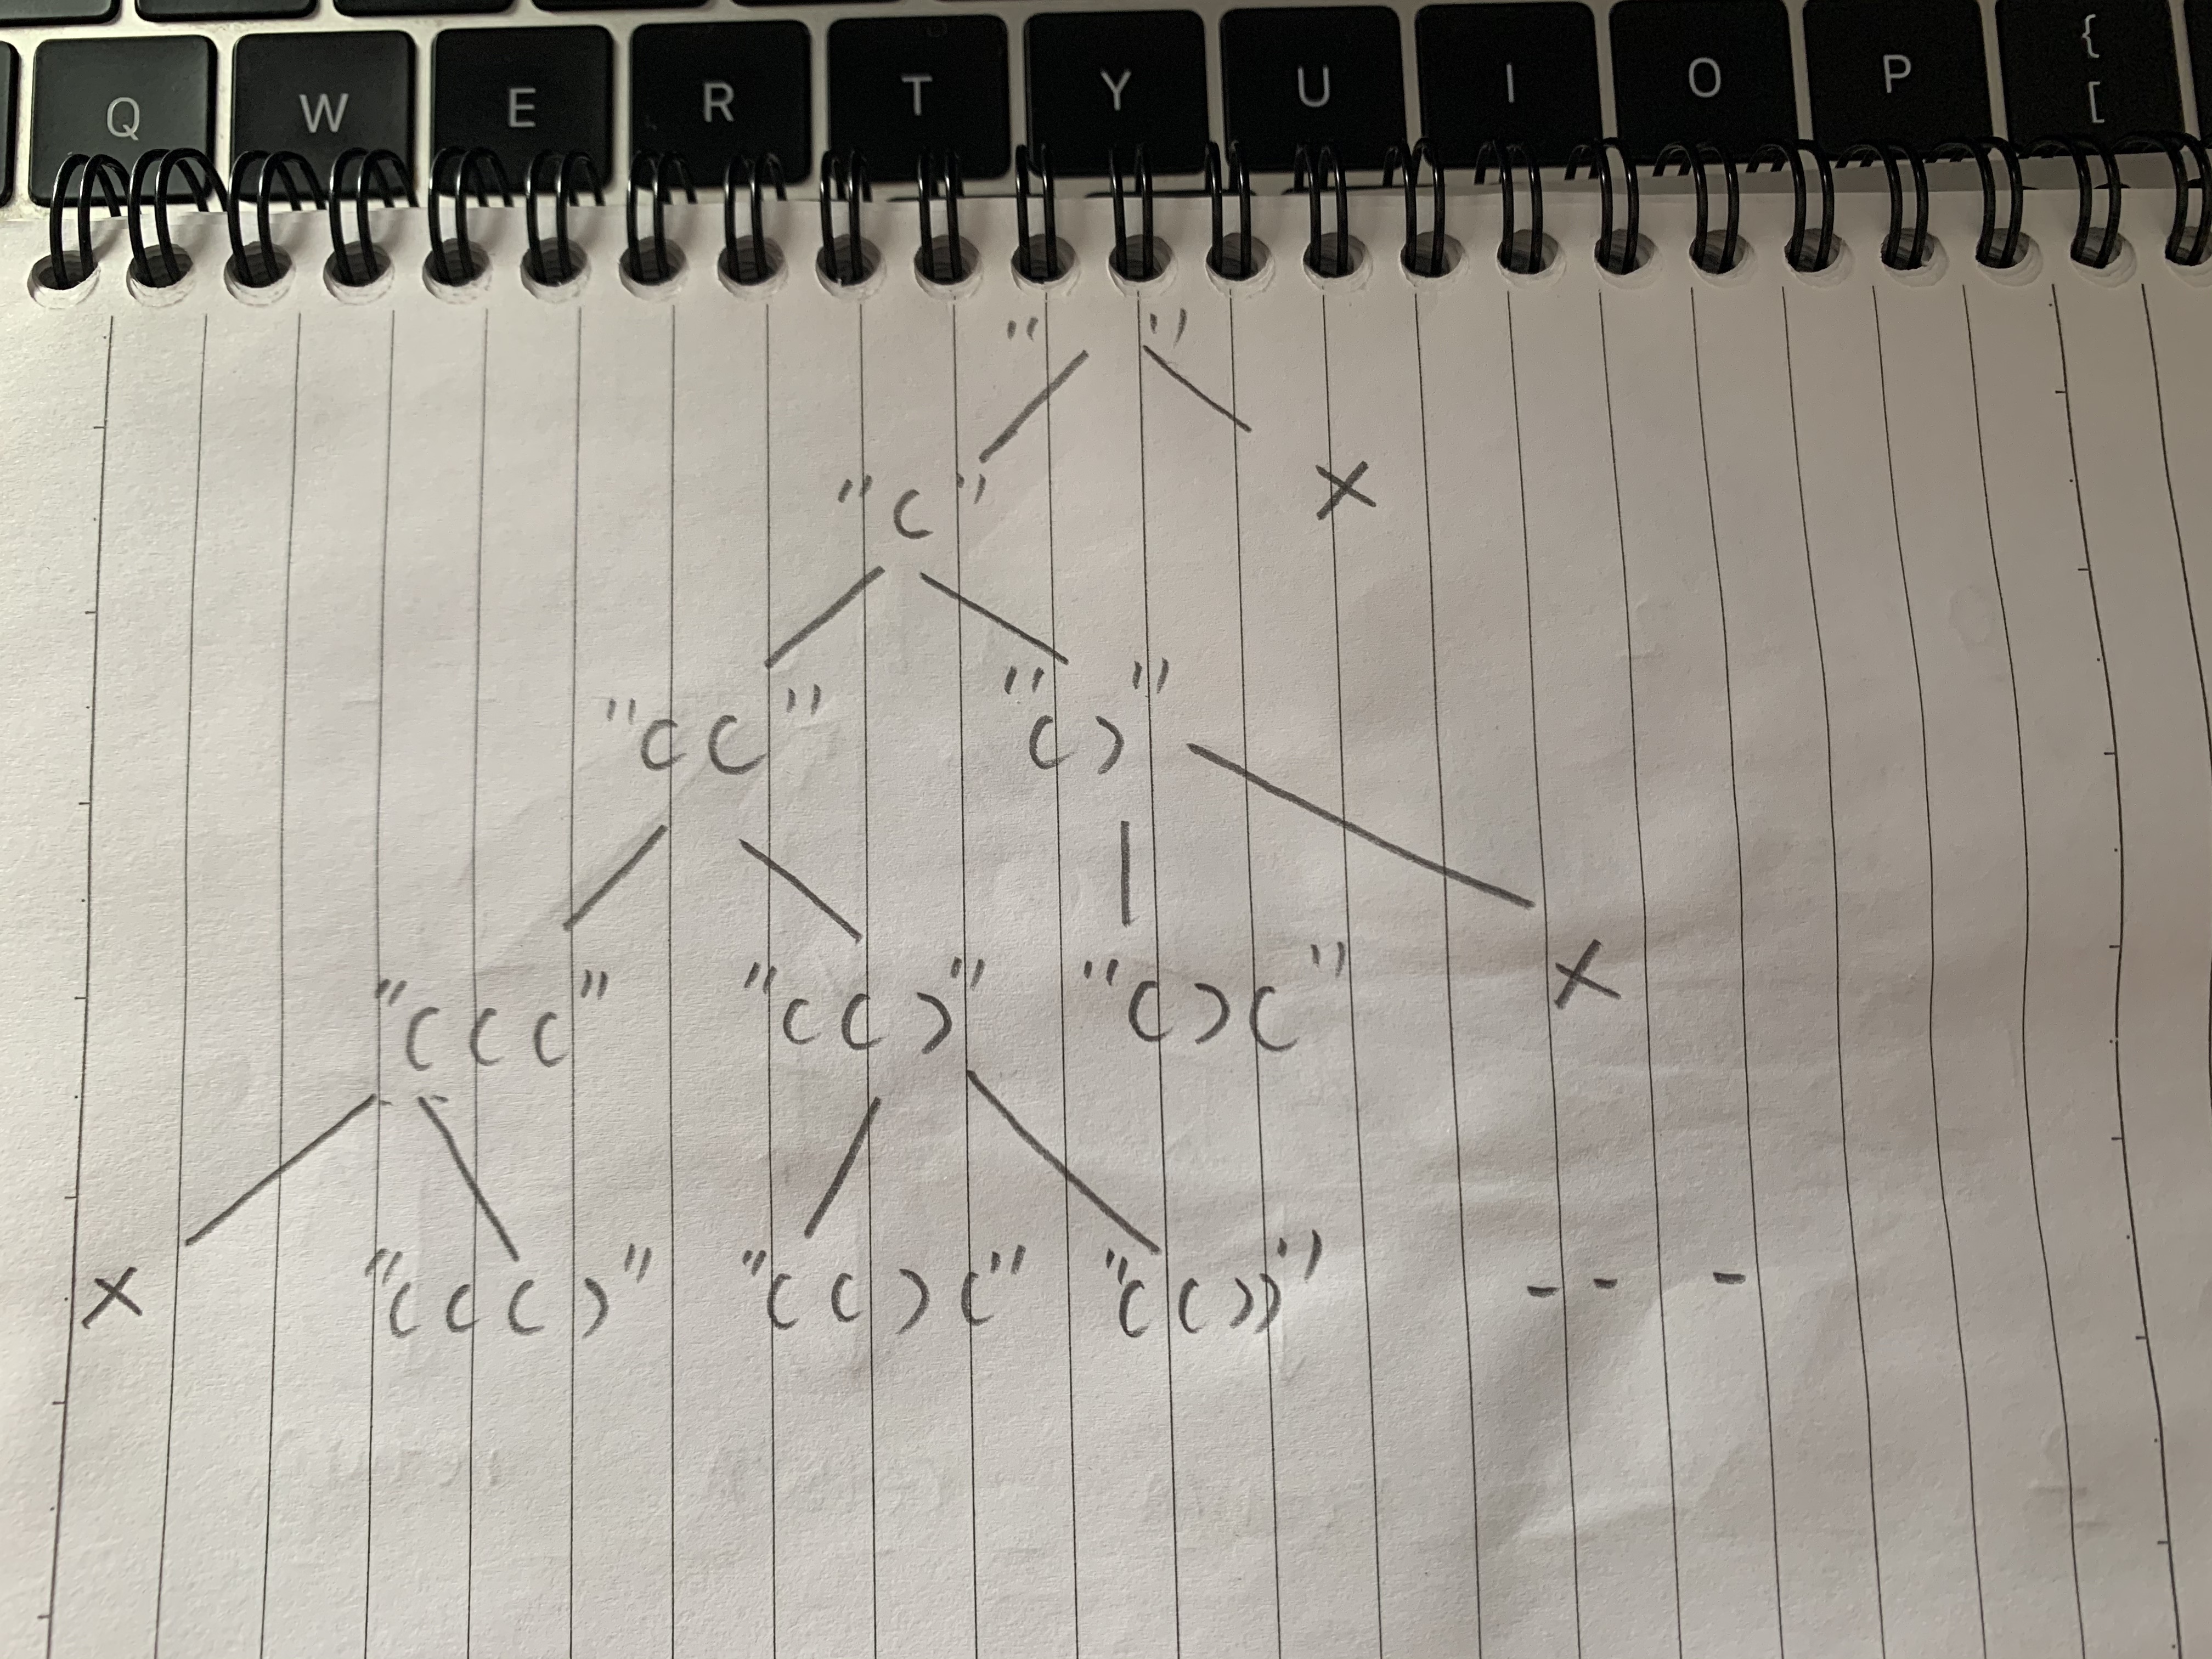 Q W E R T Y U I O P { [
" "
"(" ×
"((" "()"
"(((" "(()" "()(" ×
× "((()" "(()(" "(())" - - -